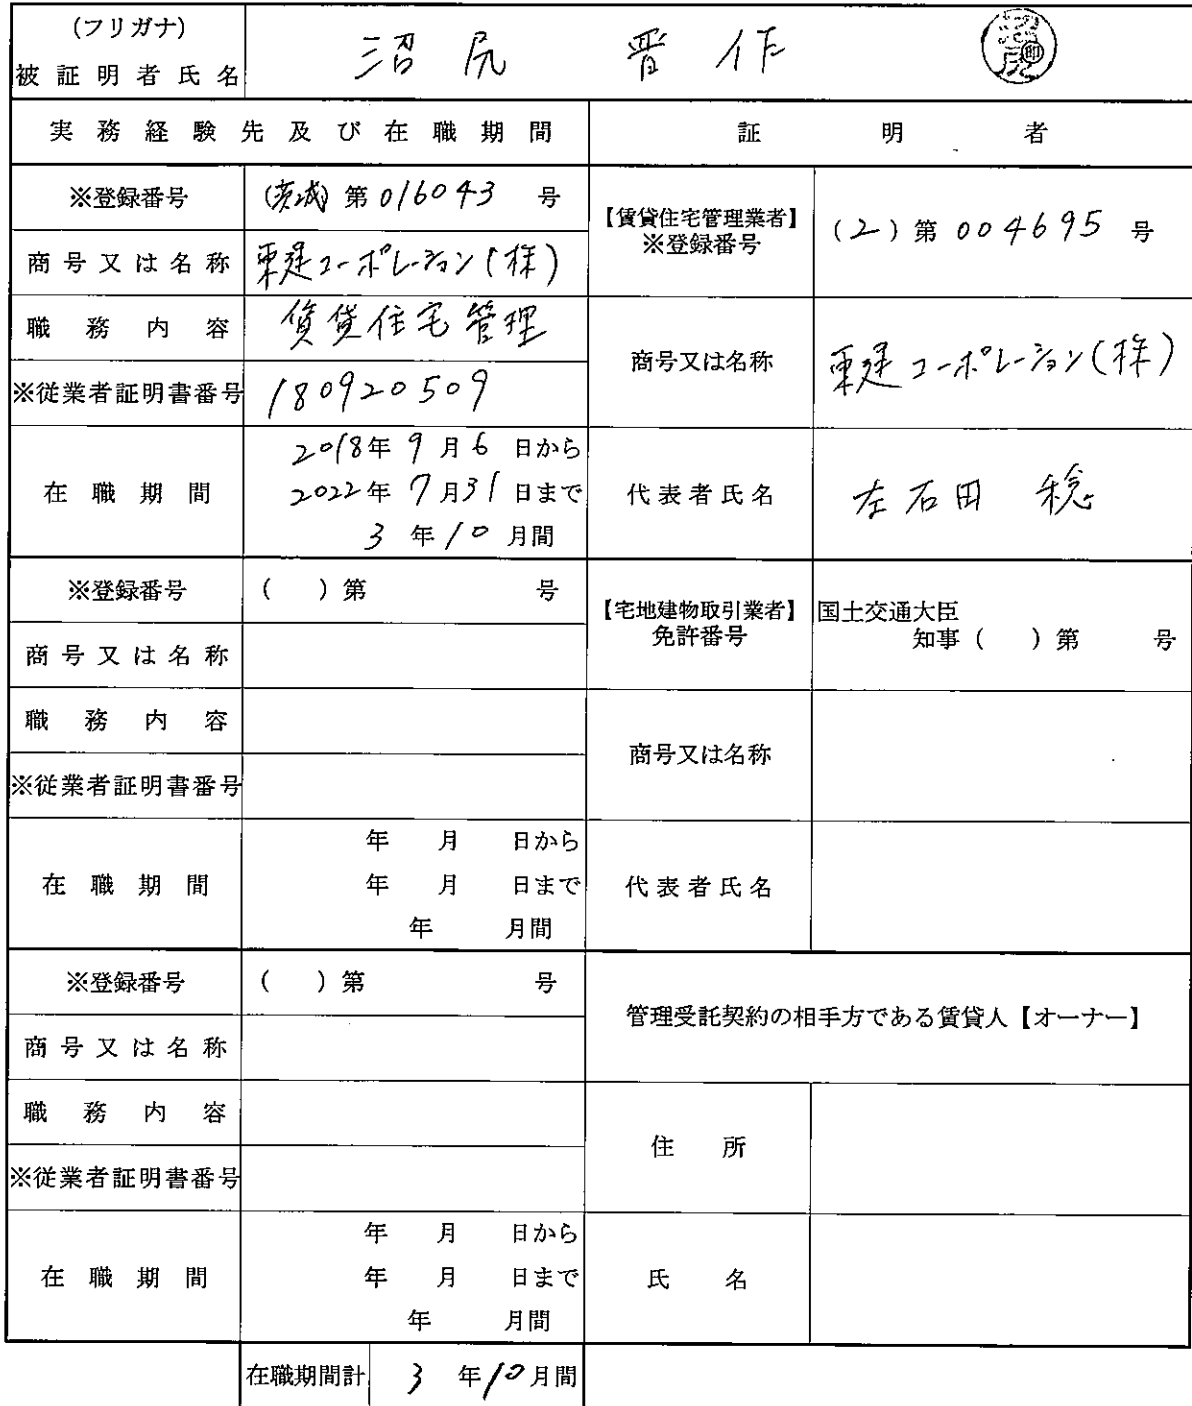 (フリガナ)
被証明者氏名 沼尻 晋作
実務経験先及び在職期間 証明者
※登録番号 (茨城) 第 016043 号
商号又は名称 東建コーポレーション(株)
職務内容 賃貸住宅管理
※従業者証明書番号 180920509
在職期間 2018年 9月 6日から
2022年 7月31日まで
3年10月間
【賃貸住宅管理業者】
※登録番号 (2) 第 004695 号
商号又は名称 東建コーポレーション(株)
代表者氏名 左右田 稔
※登録番号 ( ) 第 号
商号又は名称
職務内容
※従業者証明書番号
在職期間 年 月 日から
年 月 日まで
年 月間
【宅地建物取引業者】 国土交通大臣
免許番号 知事 ( ) 第 号
商号又は名称
代表者氏名
※登録番号 ( ) 第 号
商号又は名称
職務内容
※従業者証明書番号
在職期間 年 月 日から
年 月 日まで
年 月間
管理受託契約の相手方である賃貸人【オーナー】
住所
氏名
在職期間計 3 年10月間